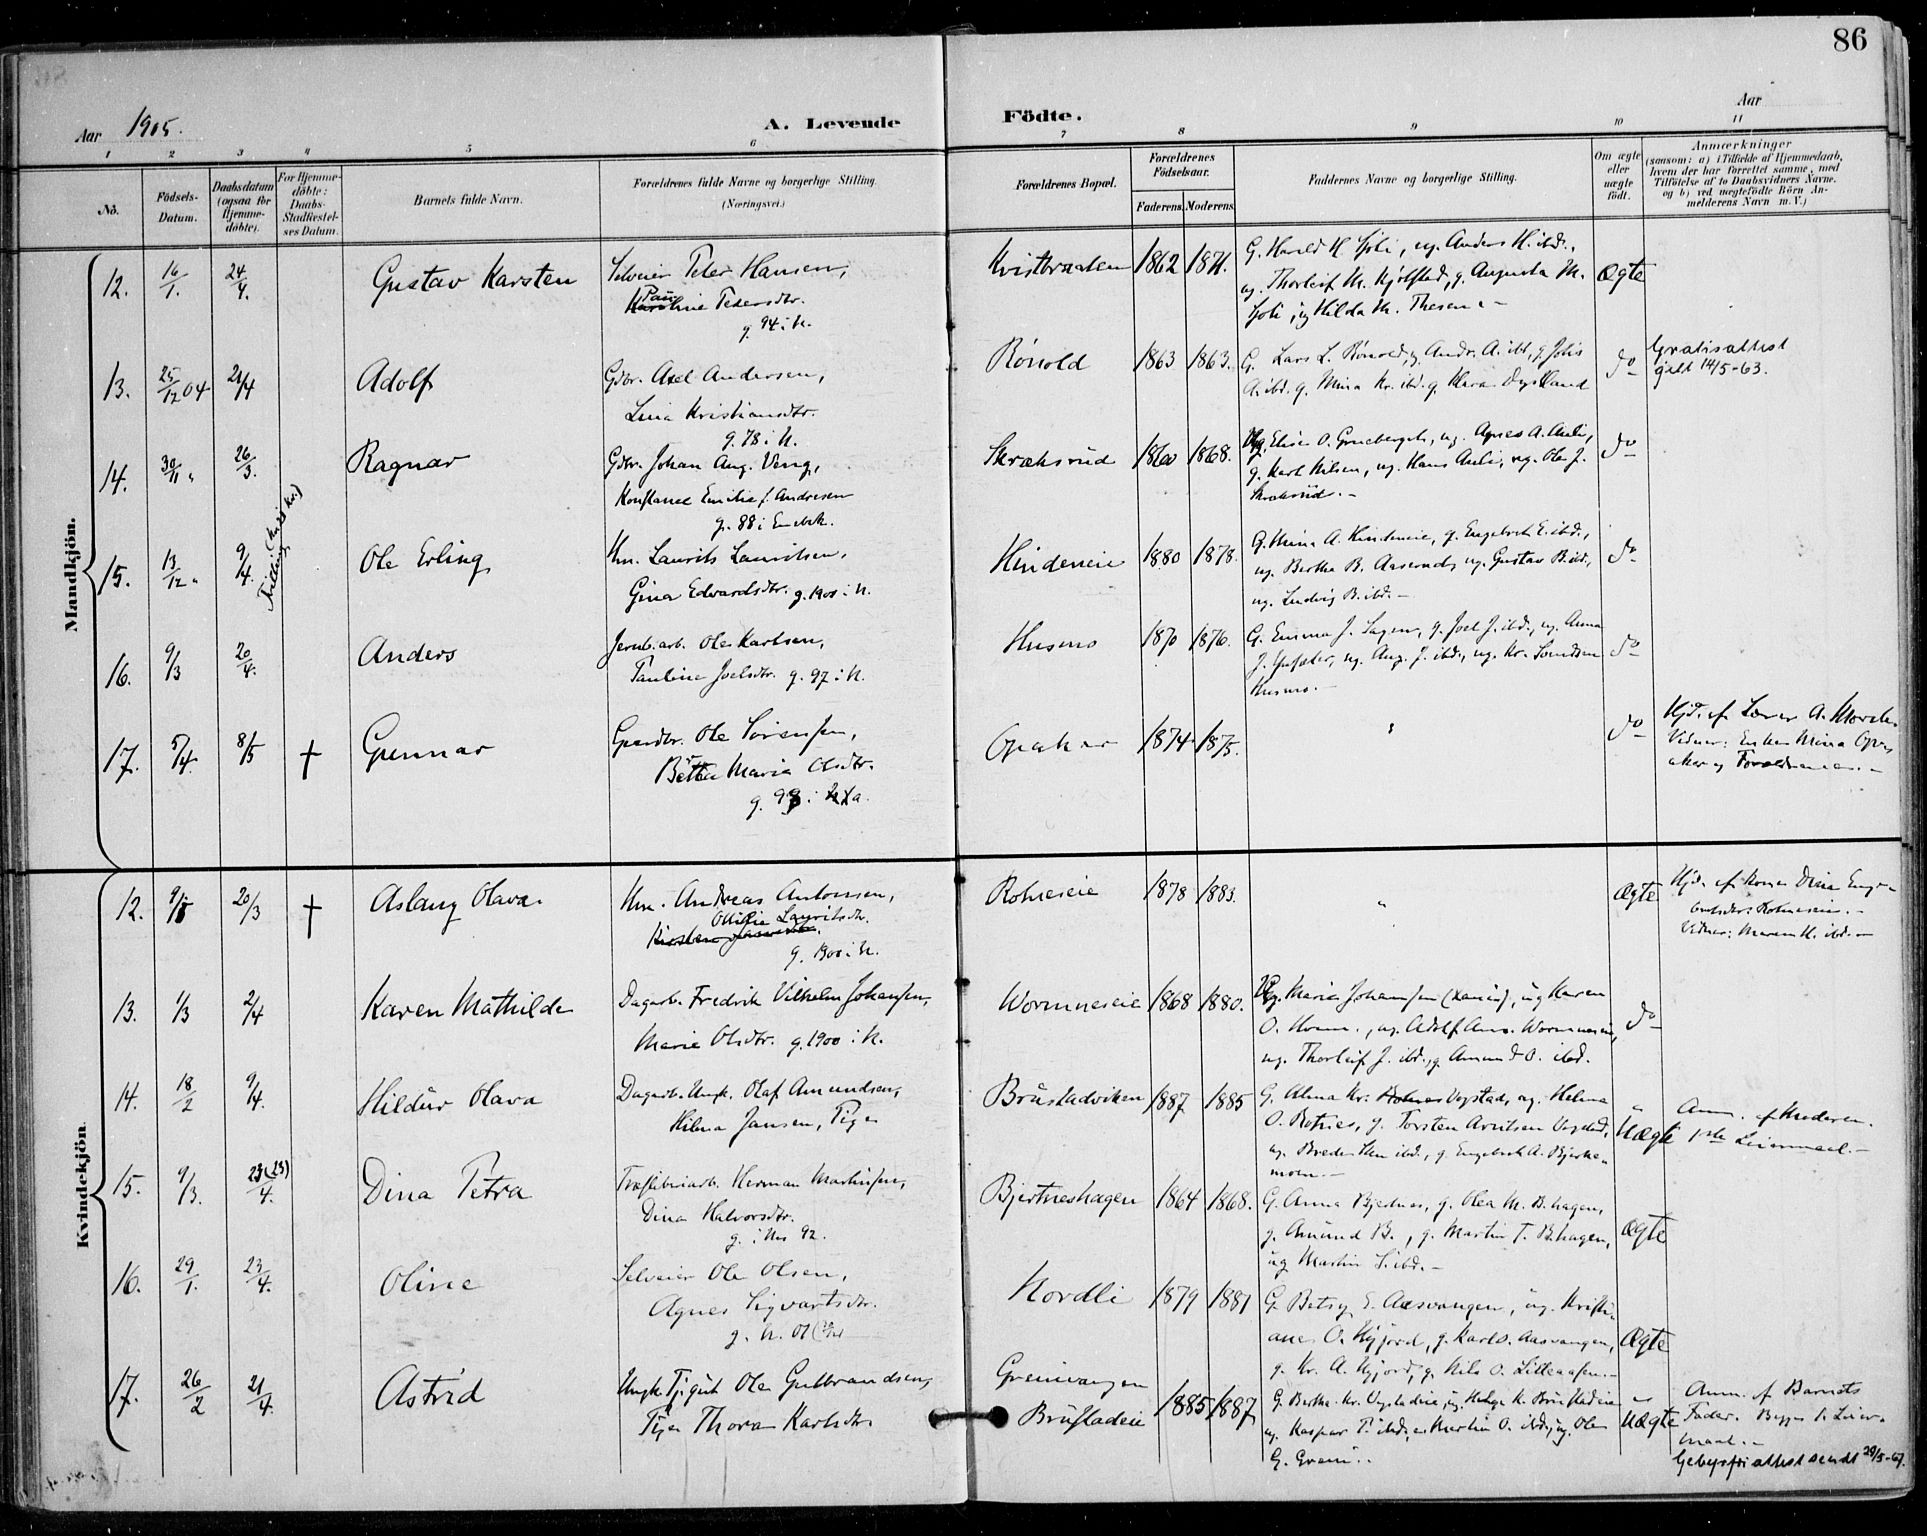 86
Aar 1905.
A. Levende Födte.
Aar
1 2 3 4 5 6 7 8 9 10 11
No.
Födsels-Datum.
Daabsdatum (ogsaa for Hjemme-döbte).
For Hjemme-döbte: Daabs-Stadfæstel-ses Datum.
Barnets fulde Navn.
Forældrenes fulde Navne og borgerlige Stilling.
(Næringsvei.)
Forældrenes Bopæl.
Forældrenes Födselsaar.
Faderens. Moderens.
Faddernes Navne og borgerlige Stilling.
Om ægte eller uægte födt.
Anmærkninger
(saasom: a) i Tilfælde af Hjemmedaab,
hvem der har forrettet samme, med
Tilföielse af to Daabsvidners Navne.
og b) ved uægtefödte Börn An-
melderens Navn m. V.)
Mandkjön.
12. 16/1. 24/4. Gustav Karsten
Selveier Peter Hansen,
Pauline Pedersdtr.
g. 94 i N.
Kvistbraaten 1862 1871.
G. Harald H. , ug. Anders H. ibd.,
ug. Thorleif M. Kjölstad, g. Augusta M.
, ug Hilda M. Thesen.-
Ægte
13. 25/12 04 24/4 Adolf
Gdbr. Axel Andersen,
Lina Kristiansdtr.
g. 78 i N.
Rönold 1863 1863.
G. Lars L. Rönold, g. Andr. A. ibd, g. Johs
A. ibd. g. Mina Kr. ibd. g. Klara Dystland
do
Gratisattest
gitt 14/5-63.
14. 30/11 " 26/3. Ragnar
Gdbr. Johan Aug. Veng,
Konstance Emilie f. Andresen
g. 88 i Enebak.
Skraksrud 1860 1868.
Ug. Elise O. Grueberget, ug. Agnes A. Auli,
g. Karl Nilsen, ug. Hans Auli, ug. Ole J.
Skraksrud.-
do
15. 13/12 " 9/4. Ole Erling
Hm. Laurits Lauritsen,
Gina Edwardsdtr. g. 1900 i N.
Hindeneie 1880 1878.
G. Mina A. Hindeneie, g. Engebret E. ibd.,
ug. Bertha B. Aaserud, ug. Gustav B. ibd.,
ug. Ludvig B. ibd.-
do
16. 9/3 20/4. Anders
Jernb.arb. Ole Karlsen,
Pauline Joelsdtr. g. 97 i N.
Husmo 1870 1876.
G. Emma J. Sagen, g. Joel J. ibd., ug. Anna
J. , ug. Aug. J. ibd., ug. Kr.
Husmo.-
do
17. 5/4. 8/5 † Gunnar
Ole Sörensen,
Maria Olsdtr.
g. i
Opaker 1874 1875.
"
do
Hjd. af Lærer A.
Vidner: Enken Mina Op-
aker og Forældrene.-
Kvindekjön.
12. 9/ 20/3 † Aslaug Olava.
Hm. Andreas Antonsen,
Lauritsdtr.
g. 1900 i N.
Rohneseie 1878 1883.
"
Ægte
Hjd. af kone Dina Enge-
bretsdtr. Rohneseie.-
Vidner: Maren H. ibd.-
13. 1/3 2/4 Karen Mathilde
Dagarb. Fredrik Vilhelm Johansen,
Marie Olsdtr. g. 1900 i N.
Wormneseie 1868 1880.
Ug. Marie Johansen , ug Karen
O. , ug. Adolf Ams. Wormneseie,
ug. Thorleif J. ibd., g. Amund O. ibd.
do
14. 18/2 9/4. Hildur Olava
Dagarb. Ungk. Olaf Amundsen,
Hilma Jansen, Pige
Brustadviken 1887 1885
G. Alma Kr. Vegstad, ug. Helena
O. Rotnes, g. Torsten Arntsen Vegstad,
ug. ibd., g. Engebret A. Bjerke-
moen.-
Uægte
Anm. af Moderen.
1ste Leiermaal.-
15. 9/3. 23(23)/4. Dina Petra
Træsliberiarb. Herman Martinsen,
Dina Halvorsdtr.
g. i Nes 92.
Bjertneshagen 1864 1868.
G. Anna Bjertnes, g. Olea M. B.hagen,
g. Amund B., g. Martin T. B.hagen,
ug Martin S. ibd.-
Ægte
16. 29/1. 23/4. Oline
Selveier Ole Olsen,
Agnes Sigvartsdtr.
g. N. 01
Nordli 1879 1881
G. Betsy E. Aasvangen, ug. Kristi-
ane O. Kjjord, g. Karl O. Aasvangen,
g. Kr. A. Kjjord, g. Nils O. Lilleaasen.-
Ægte
17. 26/2 21/4. Astrid
Ungk. Tj.gut Ole Gulbrandsen,
Pige Thora Karlsdtr.
Grenivangen
Brustadeie 1885 1887
G. Bertha Kr. Vegstadeie, ug. Helga K. Brustadeie
ug. Kaspar P. ibd., Martin O. ibd., ug. Ole
G. Greni..
Uægte
Anm. af Barnets
Fader. Begges 1. Leier-
maal.-
Gebyrfri attest sendt 29/5-67.